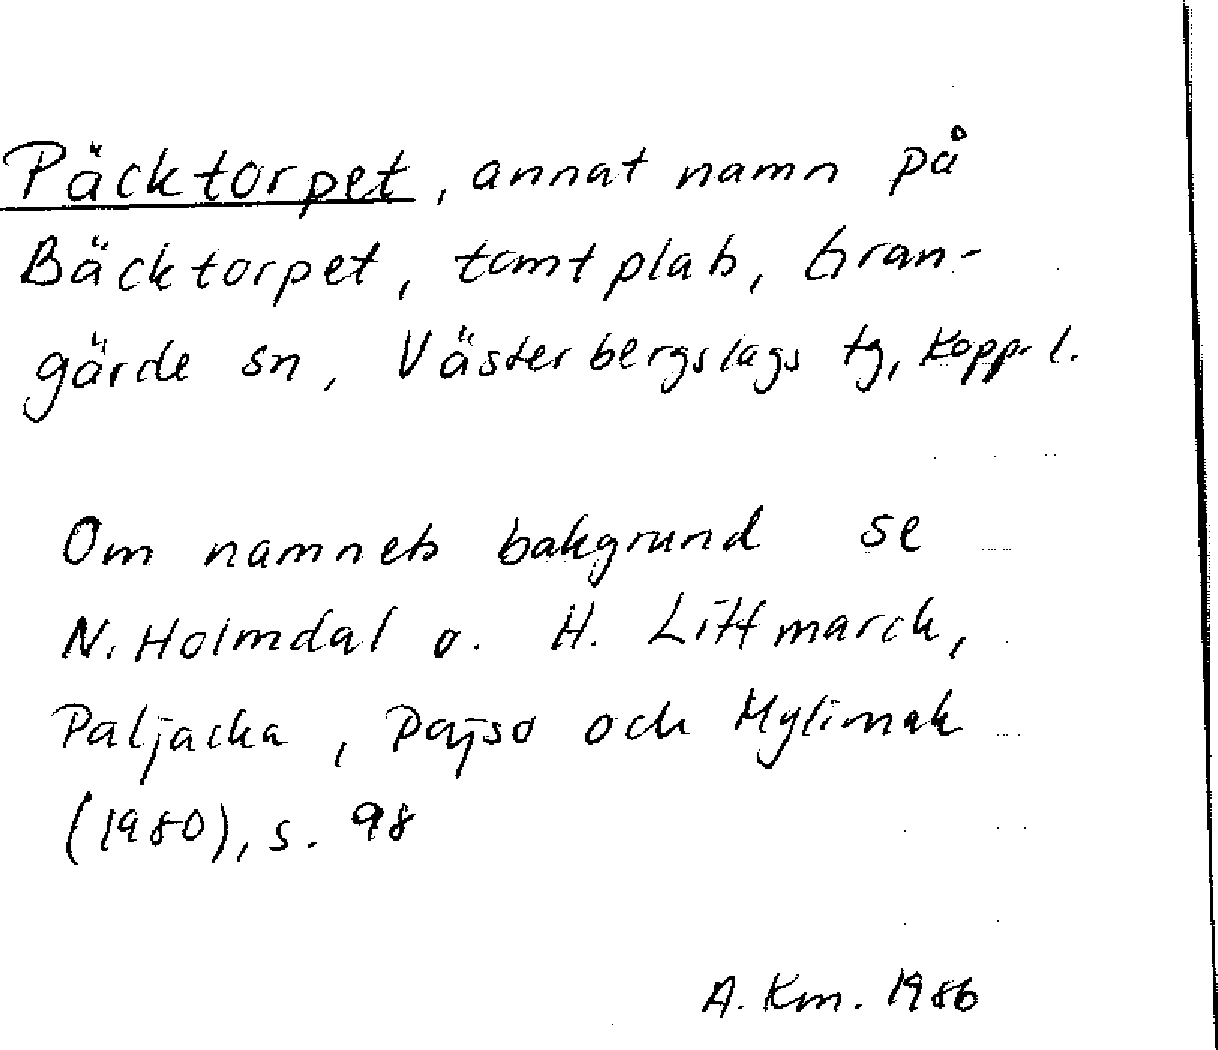 Päcktorpet, annat namn på
Bäcktorpet, tomtplats, Gran-
gärde sn, Västerbergslags tg, Kopp. l.
Om namnets bakgrund se
N. Holmdal o. H. Littmarck,
Paljacka, Pajso och Mylimak
(1980), s. 98
A. Km. 1986